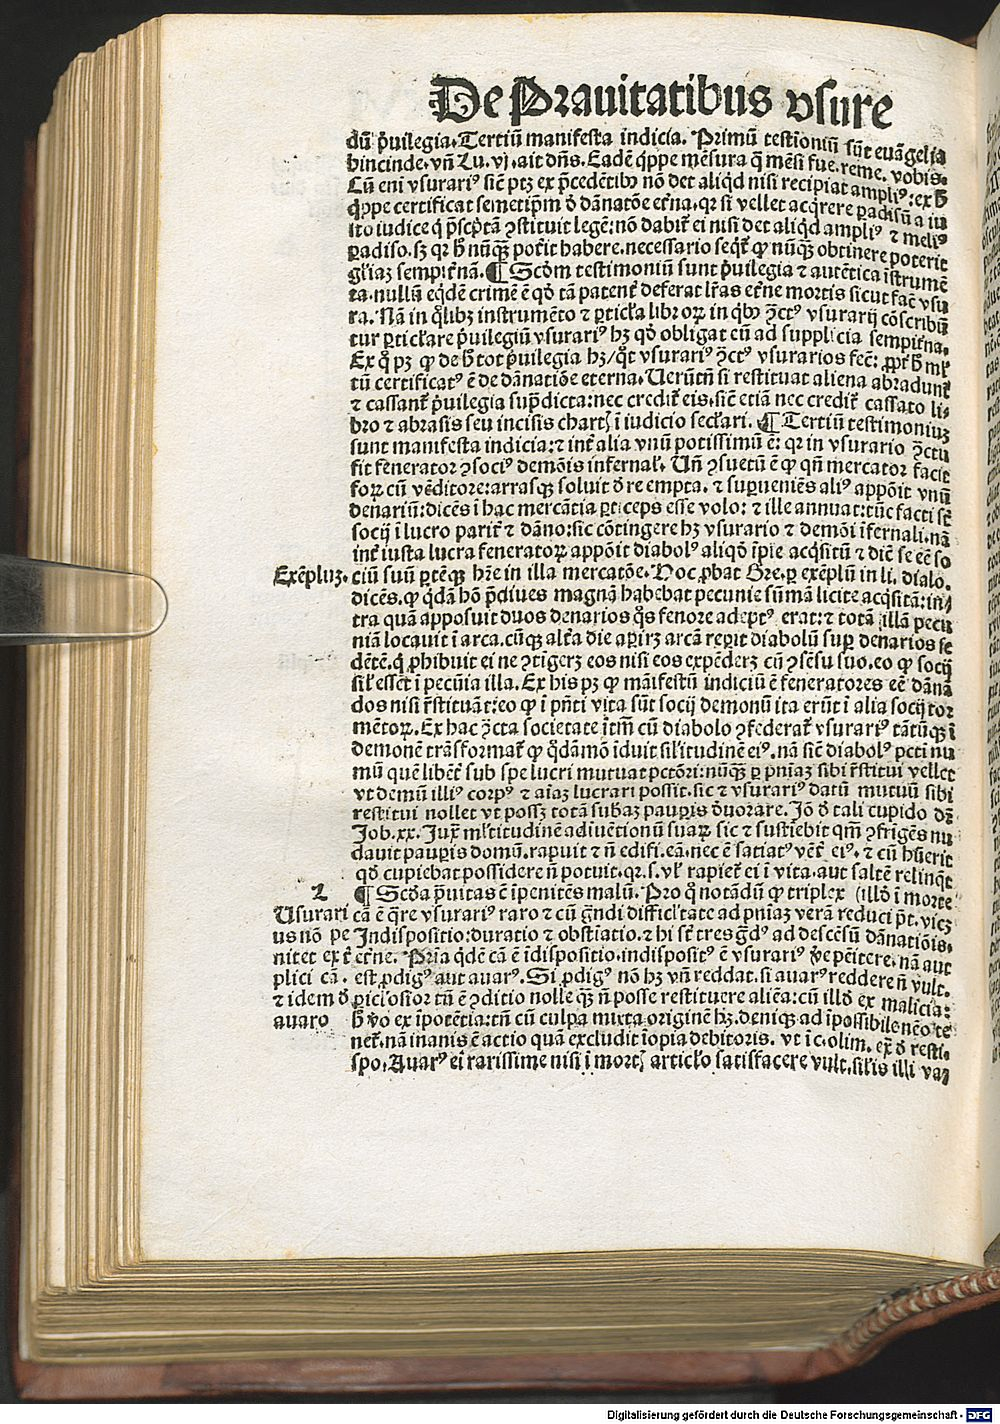 De Prauitatibus vsure
dū p̄uilegia. Tertiū manifesta indicia. Primū testioniū sūt euāgelia
hincinde. vn̄ Lu. vj. ait dn̄s. Eadē q̄ppe mēsura q̄ mēsi fue. reme. vobis.
Cū eni vsurariꝰ sic̄ ptꝫ ex p̄cedētibꝰ nō det aliqd nisi recipiat ampliꝰ: ex h̄
q̄ppe certificat semetip̄m d̄ dānatōe et̄na. qꝛ si vellet acq̄rere ꝑadisū a iu
sto iudice q̄ p̄scp̄tā ꝯstituit legē: nō dabit̄ ei nisi det aliqd ampliꝰ ⁊ meliꝰ
ꝑadiso. sꝫ qꝛ h̄ nūqꝙ̄ pot̄it habere. necessario seqt̄ ꝙ nūqꝙ̄ obtinere poterit
gl̄iaꝫ sempit̄nā. ¶ Scd̄m testimoniū sunt p̄uilegia ⁊ autētica īstrumē
ta. nullū eqdē crimē ē qd̓ tā patent̄ deferat lr̄as et̄ne mortis sicut fac̄ vsu
ra. Nā in q̄libꝫ instrumēto ⁊ ꝑticl̓a libroꝝ in qbꝰ ꝯ̄ctꝰ vsurarij cōscribū
tur ꝑticl̓are p̄uilegiū vsurariꝰ hꝫ qd̓ obligat cū ad supplicia sempit̄na.
Ex q̄ pꝫ ꝙ de h̄ tot p̄uilegia hꝫ/ qt̓ vsurariꝰ ꝯ̄ctꝰ vsurarios fec̄: ꝓpt̓ h̄ ml̓
tū certificatꝰ ē de dānatiōe eterna. Uerūtn̄ si restituat aliena abradunt̄
⁊ cassant̄ p̄uilegia sup̄dicta: nec credit̄ eis. sic̄ etiā nec credit̄ cassato li⸗
bro ⁊ abrasis seu incisis chartꝫ ī iudicio secl̓ari. ¶ Tertiū testimoniuꝫ
sunt manifesta indicia: ⁊ int̄ alia vnū potissimū ē: qꝛ in vsurario ꝯ̄ctu
fit fenerator ꝯsociꝰ demōis infernal̓. Un̄ ꝯsuetū ē ꝙ qn̄ mercator facit
foꝝ cū vēditore: arrasqꝫ soluit d̓ re empta. ⁊ suꝑueniēs aliꝰ appōit vnū
denariū: dicēs ī hac mercātia ꝑticeps esse volo: ⁊ ille annuat: tūc facti st̄
socij ī lucro parit̄ ⁊ dāno: sic cōtingere hꝫ vsurario ⁊ demōi īfernali. nā
int̄ iusta lucra feneratoꝝ appōit diabolꝰ aliqd̓ īpie acqsitū ⁊ diē se eē so
Exēpluꝫ. ciū suū ꝑtēqꝫ hr̄e in illa mercatōe. Hoc ꝓbat Gre. ꝑ exēplū in li. dialo.
dicēs. ꝙ qdā hō p̄diues magnā habebat pecunie sūmā licite acqsitā: in⸗
tra quā apposuit duos denarios q̄s fenore adeptꝰ erat: ⁊ totā illā pecu
niā locauit ī arca. cūqꝫ alt̄a die apirꝫ arcā reꝑit diabolū suꝑ denarios se
dētē. q̄ ꝓhibuit ei ne ꝯtigerꝫ eos nisi eos expēderꝫ cū ꝯsēsu suo. eo ꝙ socij
sil̓ essēt ī pecūia illa. Ex his pꝫ ꝙ māifestū indiciū ē feneratores eē dāna
dos nisi r̄stituāt: eo ꝙ ī pn̄ti vita sūt socij demonū ita erūt ī alia socij tor
mētoꝝ. Ex hac ꝯ̄cta societate it̄m cū diabolo ꝯfederat̄ vsurariꝰ tātūqꝫ ī
demonē trāsformat̄ ꝙ q̄dāmō īduit sil̓itudinē eiꝰ. nā sic̄ diabolꝰ pcti nu
mū quē libēt̄ sub spe lucri mutuat pctōri: nūqꝙ̄ ꝑ pn̄iaꝫ sibi r̄stitui vellet
vt demū illiꝰ corpꝰ ⁊ aīaꝫ lucrari possit. sic ⁊ vsurariꝰ datū mutuū sibi
restitui nollet vt possꝫ totā subaꝫ pauꝑis d̓uorare. Jō d̓ tali cupido dꝫ
Job. xx. Juxᷓ ml̓titudinē adiuētionū suaꝝ sic ⁊ sustiebit qm̄ ꝯfrigēs nu
dauit pauꝑis domū. rapuit ⁊ n̄ edifi. eā. nec ē satiatꝰ vēt̄ eiꝰ. ⁊ cū hūerit
qd̓ cupiebat possidere n̄ potuit. qꝛ. s. vl̓ rapiet̄ ei ī vita. aut saltē relinqt̄
2 ¶ Scd̓a p̄uitas ē īpenitēs malū. Pro q̄ notādū ꝙ triplex (illd̓ ī morte
Usurari cā ē q̄re vsurariꝰ raro ⁊ cū gn̄di difficl̓tate ad pn̄iaꝫ verā reduci pt̄. vicꝫ
us nō pe Indispositio: duratio ⁊ obstīatio. ⁊ hi st̄ tres gd̓ꝰ ad descēsū dānatiōis.
nitet ex t̄ et̄ne. Prīa qdē cā ē īdispositio. indispositꝰ ē vsurariꝰ v̓e pēitere. nā aut
plici cā. est ꝓdigꝰ aut auarꝰ. Si ꝓdigꝰ nō hꝫ vn̄ reddat. si auarꝰ reddere n̄ vult.
⁊ idem d̓ ꝑicl̓osior tn̄ ē ꝯditio nolle qꝙ̄ n̄ posse restituere aliēa: cū illd̓ ex malicia:
auaro h̄ v̓o ex īpotētia: tn̄ cū culpa mixta originē hꝫ. deniqꝫ ad īpossibile nēo te
net̄. nā inanis ē actio quā excludit īopia debitoris. vt ī c. olim. exͣ d̓ resti⸗
spo. Auarꝰ ei rarissime nisi ī mortꝫ articl̓o satisfacere vult. sil̓is illi vaꝫ
Digitalisierung gefördert durch die Deutsche Forschungsgemeinschaft - DFG